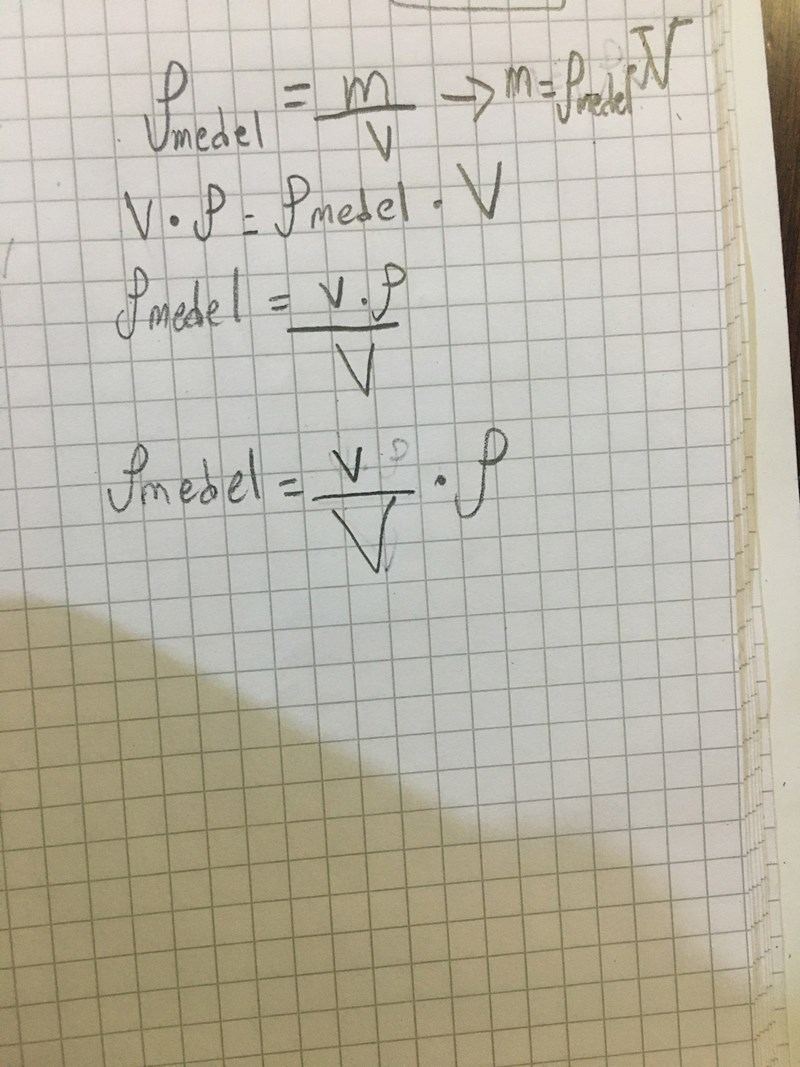 ρmedel = m/V → m = ρmedel · V
v · ρ = ρmedel · V
ρmedel = v · ρ / V
ρmedel = v/V · ρ